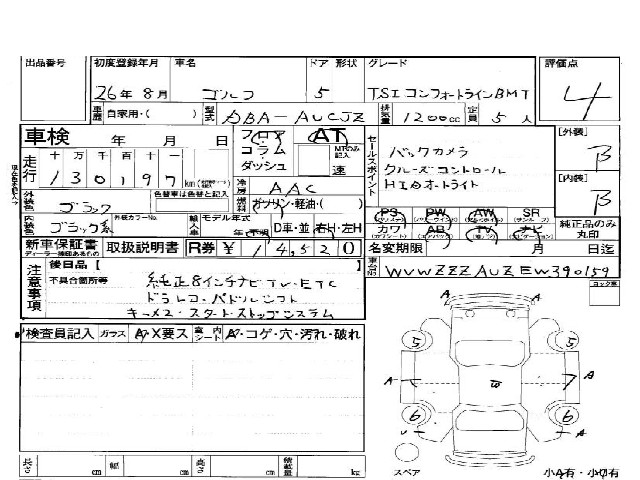 出品番号 初度登録年月 車名 ドア 形状 グレード 評価点
26年 8月 ゴルフ 5 TSI コンフォートラインBMT 4
車歴 自家用・( ) 型式 DBA-AUCJZ 排気量 1200cc 定員 5人
車検 年 月 日 フロア AT
コラム MTのみ記入
ダッシュ 速
走行 十万千百十一
130197 km
セールスポイント
バックカメラ
クルーズコントロール
HIDオートライト
[外装] B
[内装] B
外装色 ブラック 色替車は色替と記入 冷房 AAC
ガソリン・軽油( )
内装色 ブラック系 外装カラーNo. 輸入車 モデル年式 年(不明) D車・並 右H・左H
PS PW AW SR
カワ AB TV ナビ
純正品のみ丸印
新車保証書 取扱説明書 R券 ¥ 14,520
ディーラー捺印あるもの
名変期限 月 日迄
車台No WVWZZZAUZEW390159
コック車
注意事項 後日品【 】
不具合箇所等 純正8インチナビTV・ETC
ドラレコ・パドルシフト
キーメス・スタートストップシステム
検査員記入 ガラス A・X要ス 室内シート A・コゲ・穴・汚れ・破れ
A A
5 5
A W A
6 6
A
スペア
小A有・小キズ有
長さ cm 幅 cm 高さ cm 積載量 kg